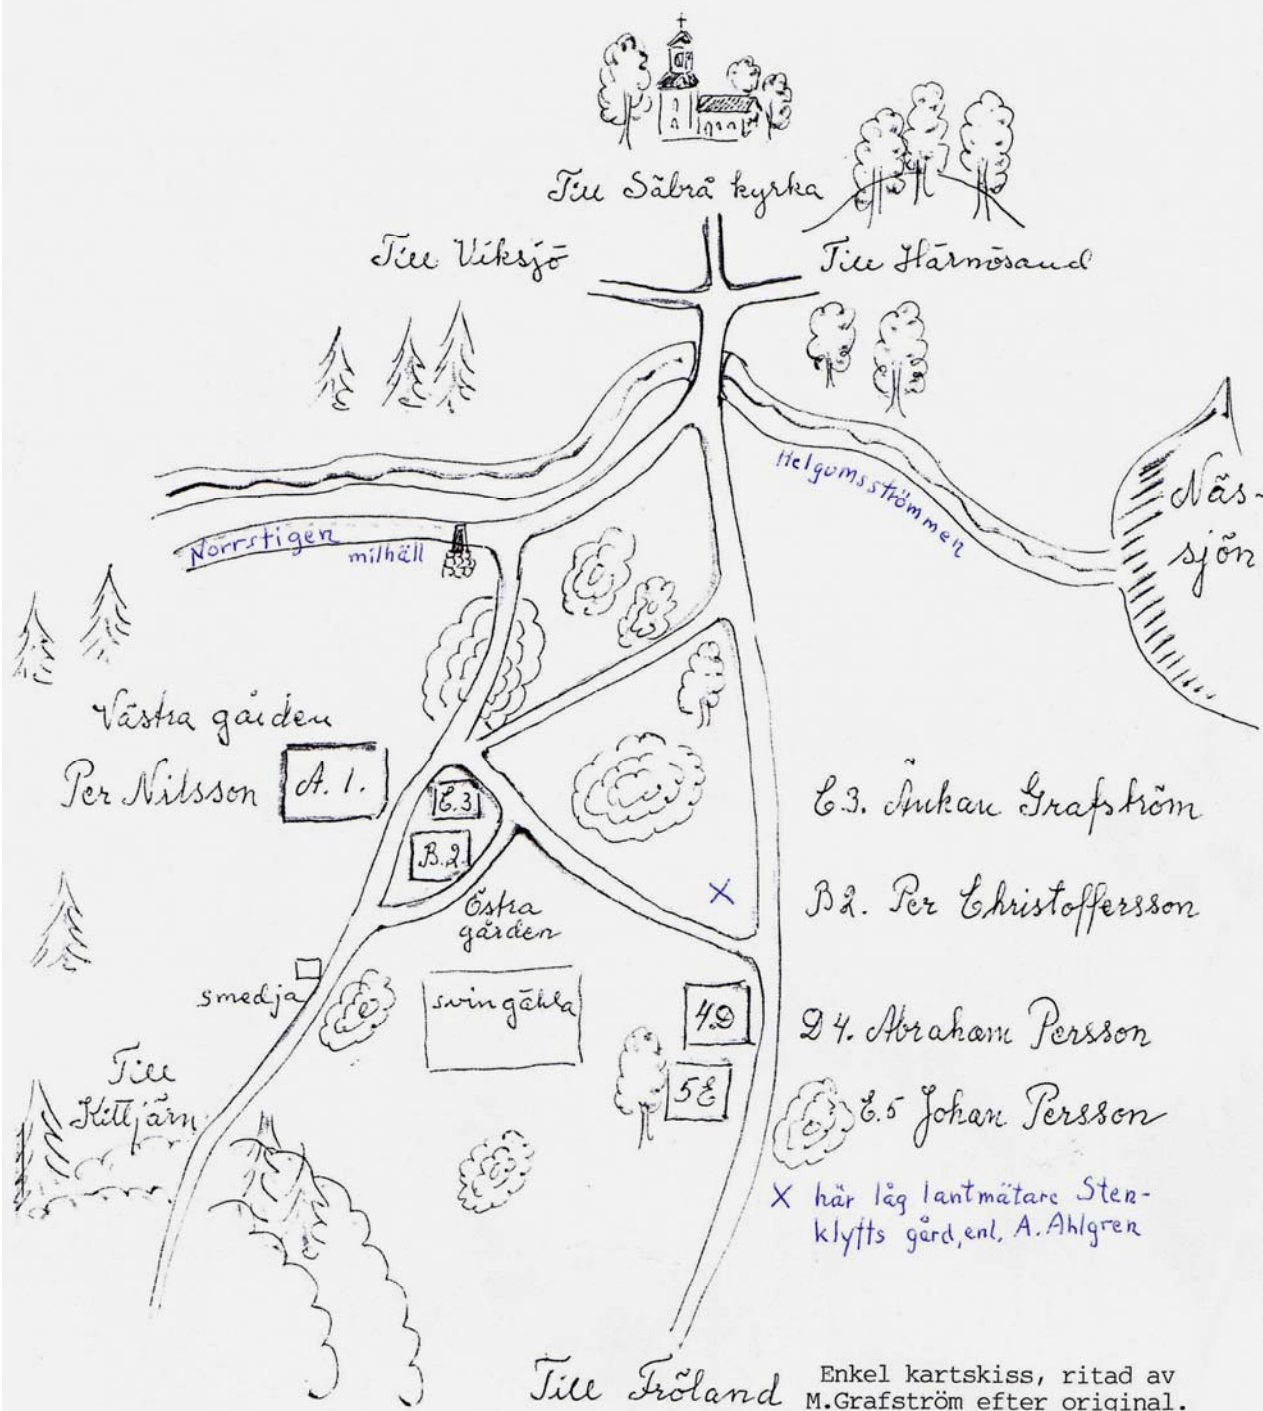 Till Säbrå kyrka
Till Viksjö
Till Härnösand
Helgomsströmmen
Näs-
sjön
Norrstigen
milhäll
Västra gården
Per Nilsson
A. 1.
C.3
B.2.
Östra
gården
C.3. Änkan Grafström
B2. Per Christoffersson
smedja
svingähla
4.D
D 4. Abraham Persson
5E
E.5 Johan Persson
Till
Kittjärn
X här låg lantmätare Sten-
klyfts gård, enl. A. Ahlgren
Till Fröland
Enkel kartskiss, ritad av
M.Grafström efter original.